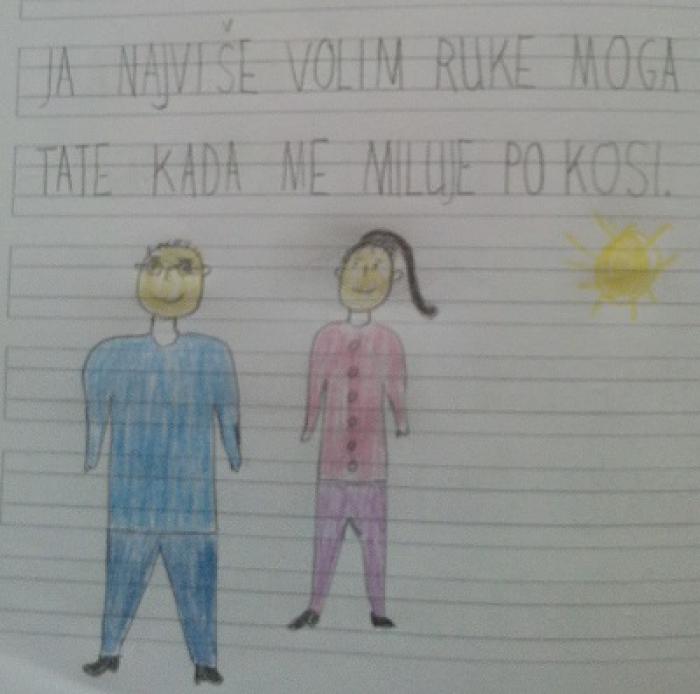 JA NAJVIŠE VOLIM RUKE MOGA
TATE KADA ME MILUJE PO KOSI.